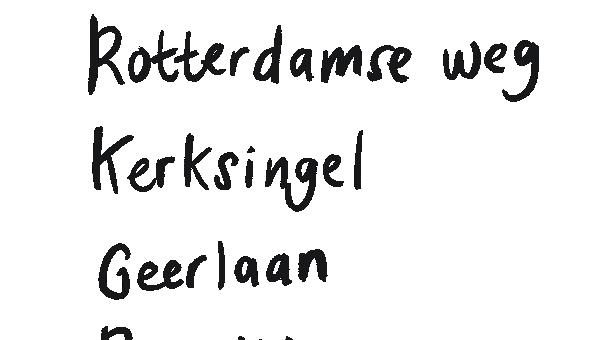 Rotterdamse weg
Kerksingel
Geerlaan